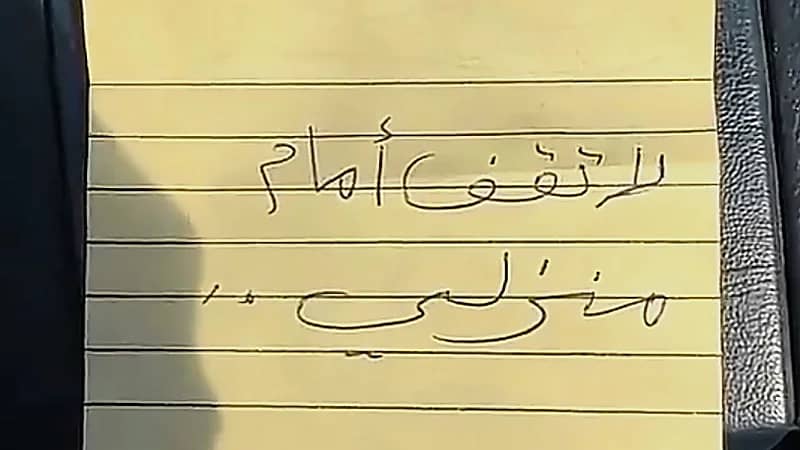 لا تقف أمام
منزلي ..